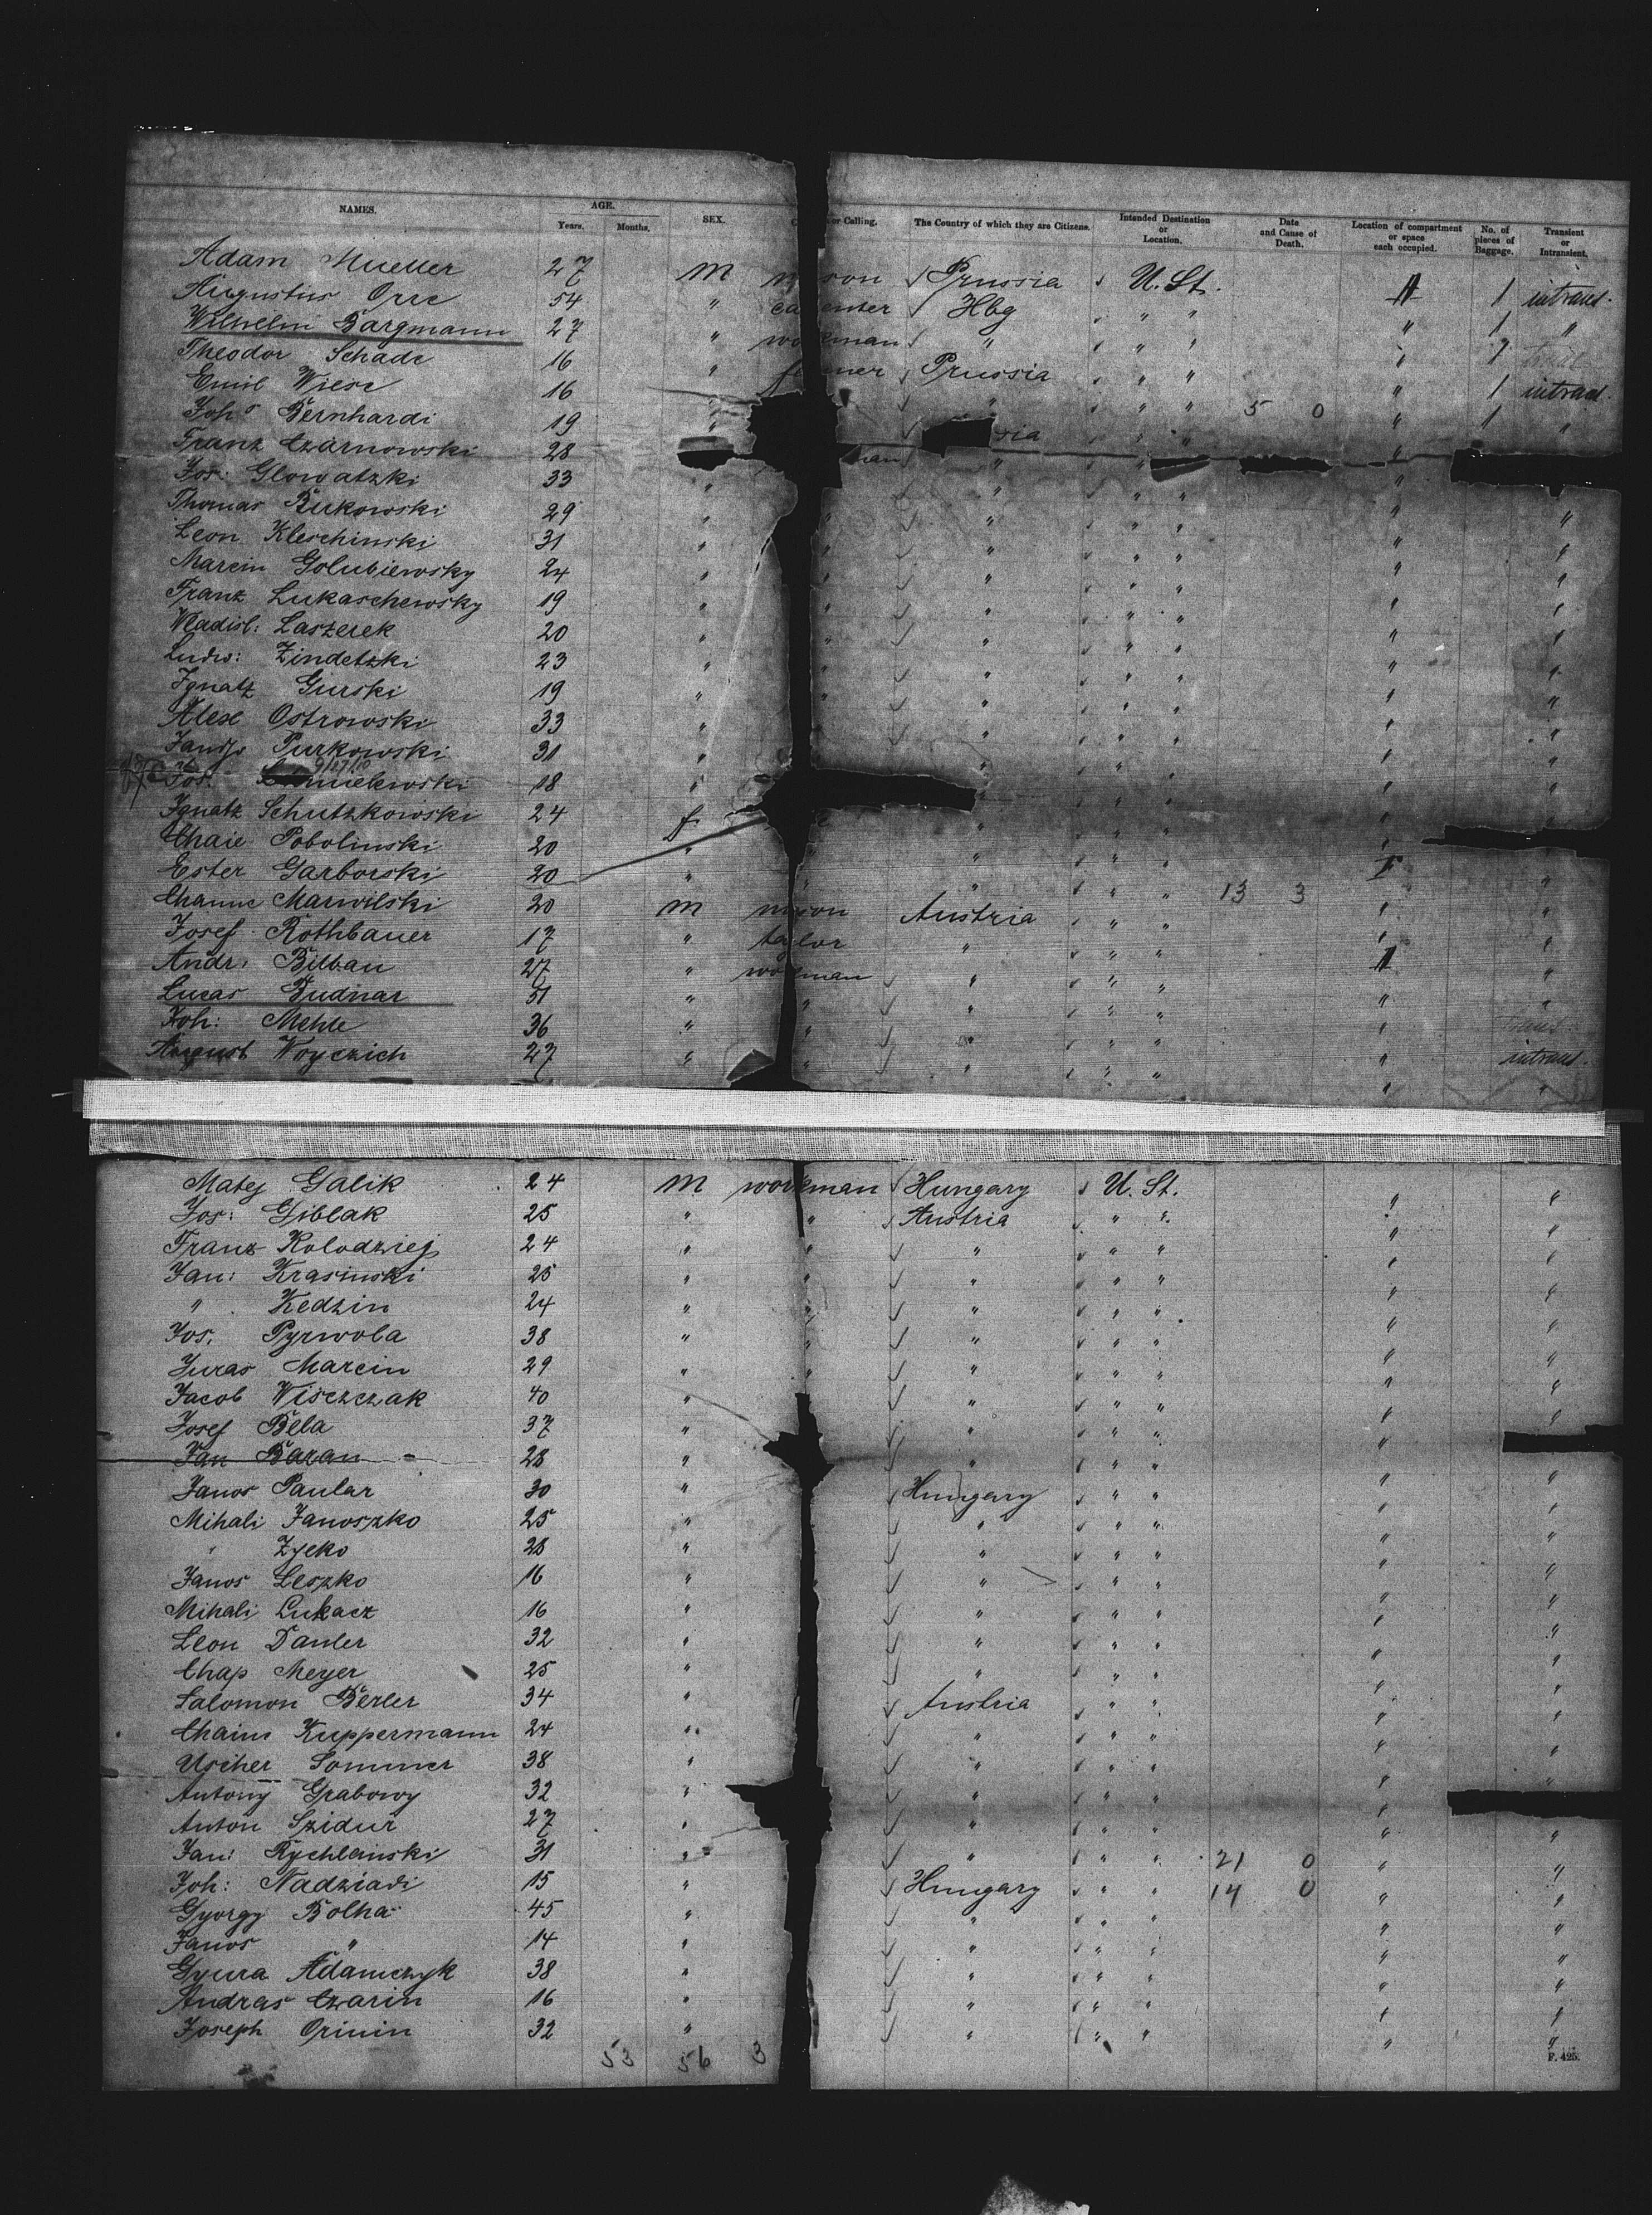 NAMES. AGE. Years. Months. SEX. or Calling. The Country of which they are Citizens. Intended Destination or Location. Date and Cause of Death. Location of compartment or space each occupied. No. of pieces of Baggage. Transient or Intransient.
Adam Mueller 27 M son Prussia U. St. 1 intrans.
Augustus Orre 54 " enter Hbg " " " 1 "
Wilhelm Bargmann 27 " workman " " " " 1
Theodor Schade 16 " ner Prussia " " " 1 intrans.
Emil Wiese 16 " " " " 5 0 " 1 "
Joh: Bernhardi 19 " sia " " "
Franz Czarnowski 28 man " " "
Jos: Glowatzki 33 " " " " " "
Thomas Bukowski 29 " " " " " " "
Leon Kleschinski 31 " " " " " " "
Marcin Golubiewsky 24 " " " " " " "
Franz Lukaschewsky 19 " " " " " " "
Wladisl: Laszerek 20 " " " " " " "
Ludw: Zindetzki 23 " " " " " " "
Ignatz Gurski 19 " " " " " " "
Alex Ostrowski 33 " " " " " "
Purkowski 31 " " " " " "
Jos. 18 " " " " "
Ignatz Schutzkowski 24 f " " " " "
Chaie Pobolinski 20 " " " " "
Ester Garborski 20 " " " " " 13 3 "
Channe Marwilski 20 M son Austria " " " "
Josef Rothbauer 17 " taylor " " " "
Andr. Bilbau 27 " workman " " " "
Lucas Budnar 51 " " " " " " trans
Joh: Mehle 36 " " " " " " intrans.
August Woyczich 27 " " " " " " "
Matej Galik 24 M workman Hungary U. St. " "
Jos: Giblak 25 " " Austria " " " "
Franz Kolodziej 24 " " " " " " "
Jan: Krasinski 25 " " " " " " "
" Kedzin 24 " " " " " " "
Jos. Pyrwola 38 " " " " " " "
Juras Marcin 29 " " " " " " "
Jacob Wisczczak 40 " " " " " "
Josef Bela 37 " " " " "
Jan Baran 28 " " " " " "
Janos Paular 30 " Hungary " " " "
Mihali Janoszko 25 " " " " " "
" Zyeko 28 " " " " " "
Janos Leszko 16 " " " " " "
Mihali Lukacz 16 " " " " " "
Leon Dauler 32 " " " " " "
Chap Meyer 25 " " " " " "
Salomon Berler 34 " Austria " " " "
Chaim Kuppermann 24 " " " " " "
Uscher Sommer 38 " " " " " "
Antony Grabowy 32 " " " " "
Anton Szidur 27 " " " " " "
Jan: Rychlanski 31 " " " " 21 0 " "
Joh: Nadziadi 15 " Hungary " " 14 0 " "
Gyorgy Bolha 45 " " " " " "
Janos " 14 " " " " " "
Gyura Adamczyk 38 " " " " " "
Andras Czarin 16 " " " " " "
Joseph Orinin 32 " " " " " "
53 56 3
F. 425.